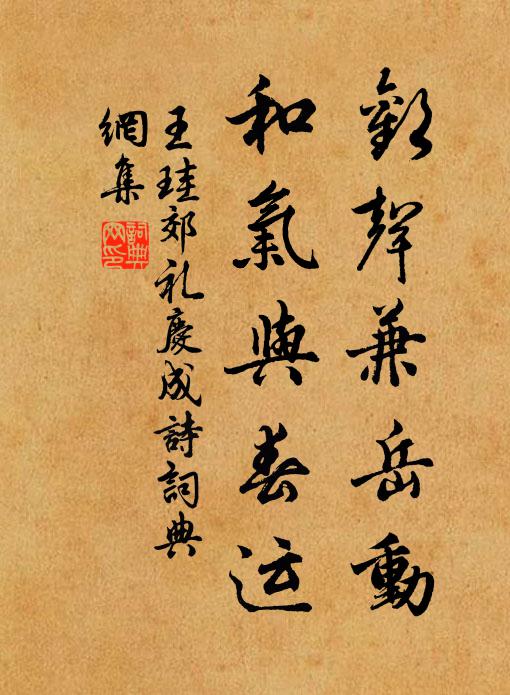 歡聲兼岳動
和氣與春运
王珪郊礼慶成詩詞典
網集
詞典
网印